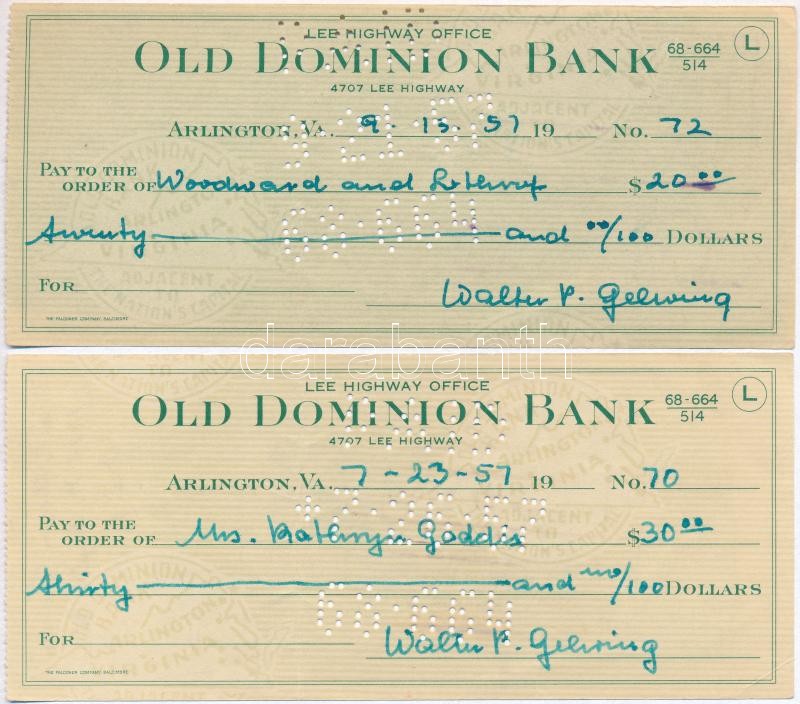 LEE HIGHWAY OFFICE
OLD DOMINION BANK
68-664
514
L
4707 LEE HIGHWAY
ARLINGTON, VA. 9-13-57 19 No. 72
PAY TO THE
ORDER OF Woodward and Lothrop $20.00
twenty and 00/100 DOLLARS
FOR
Walter P. Gehring
THE FALCONER COMPANY, BALTIMORE
darabanth
LEE HIGHWAY OFFICE
OLD DOMINION BANK
68-664
514
L
4707 LEE HIGHWAY
ARLINGTON, VA. 7-23-57 19 No. 70
PAY TO THE
ORDER OF Mrs. Kathryn Gaddis $30.00
thirty and no/100 DOLLARS
FOR
Walter P. Gehring
THE FALCONER COMPANY, BALTIMORE